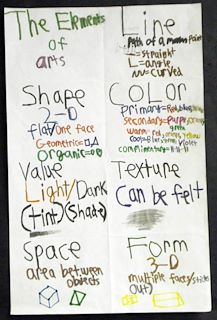 The Elements
of
arts
Line
Path of a moving point
—=straight
L=angle,
=curved
Shape
2-D
flat/One face
Geometric=
organic=
COLOR
Primary=Red,blue,
secondary=Purple,orange,
green
warm=red,orange,yellow
cool=blue,green,violet
complimentary=
Value
Light/Dark
(tint)(shade)
Texture
Can be felt
Space
area between
objects
Form
3-D
multiple faces/sticks
out)